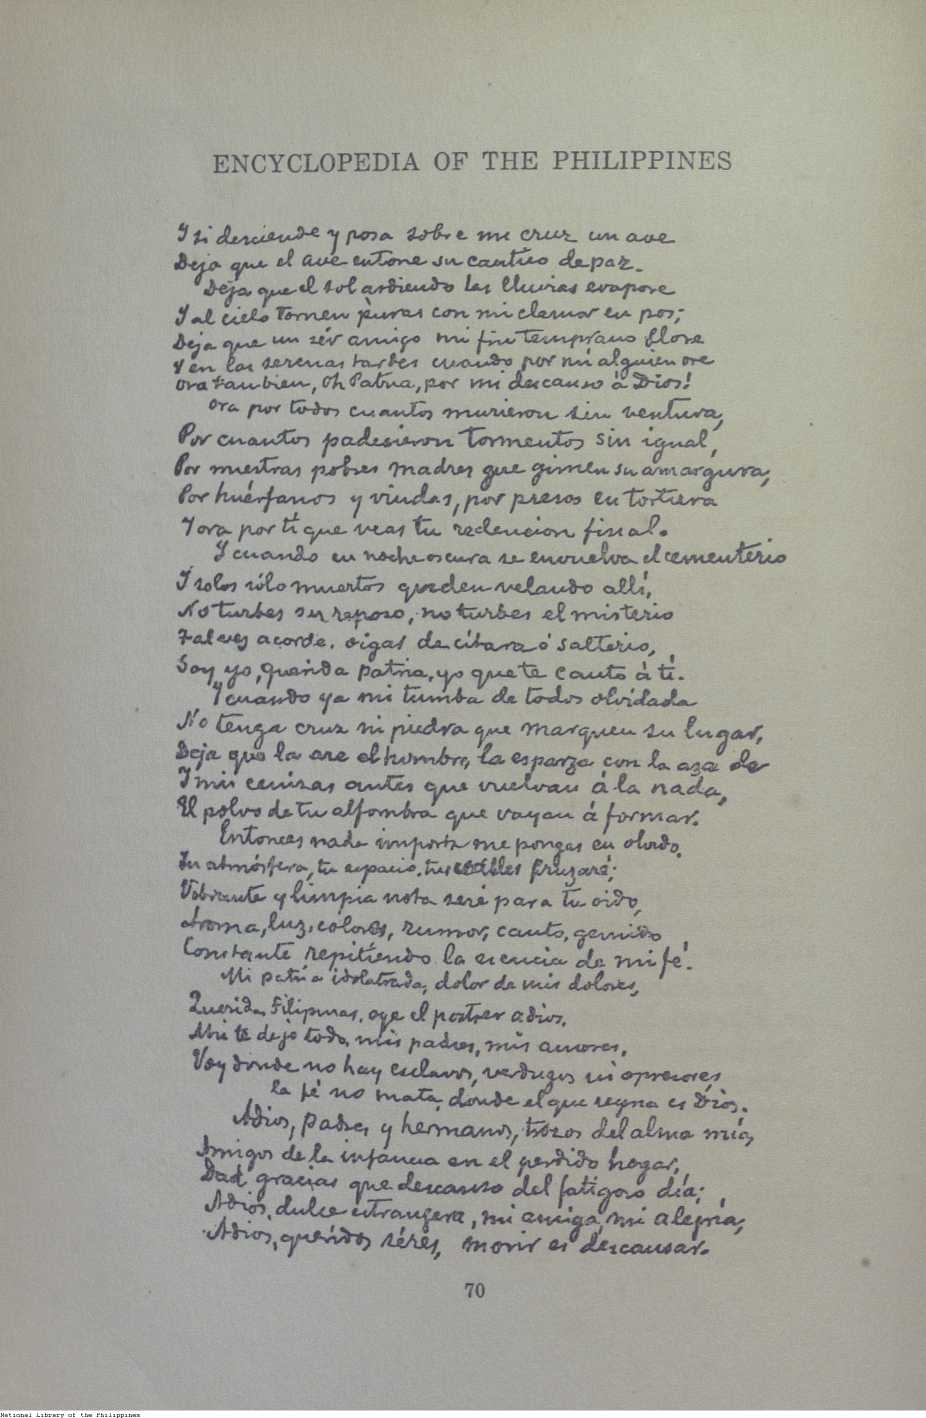 ENCYCLOPEDIA OF THE PHILIPPINES
Y si desciende y posa sobre mi cruz un ave
Deja que el ave entone su cantico de paz.
Deja que el sol ardiendo las lluvias evapore
Y al cielo tornen puras con mi clamor en pos;
Deja que un sér amigo mi fin temprano llore
Y en las serenas tardes cuando por mi alguien ore
Ora tambien, Oh Patria, por mi descanso á Dios!
Ora por todos cuantos murieron sin ventura,
Por cuantos padecieron tormentos sin igual,
Por nuestras pobres madres que gimen su amargura,
Por huérfanos y viudas, por presos en tortura
Y ora por tí que veas tu redencion final.
Y cuando en noche oscura se envuelva el cementerio
Y solos sólo muertos queden velando allí,
No turbes su reposo, no turbes el misterio
Tal vez acorde. oigas de cítara ó salterio,
Soy yo, querida patria, yo que te canto á tí.
Y cuando ya mi tumba de todos olvidada
No tenga cruz ni piedra que marquen su lugar,
Deja que la are el hombre, la esparza con la aza de
Y mis cenizas antes que vuelvan á la nada,
El polvo de tu alfombra que vayan á formar.
Entonces nada importa me pongas en olvido,
Tu atmósfera, tu espacio, tus valles cruzaré;
Vibrante y limpia nota seré para tu oido,
Aroma, luz, colores, rumor, canto, gemido
Constante repitiendo la esencia de mi fé.
Mi patria idolatrada, dolor de mis dolores,
Querida Filipinas, oye el postrer adios.
Ahi te dejo todo, mis padres, mis amores.
Voy donde no hay esclavos, verdugos ni opresores
la fé no mata, donde el que reyna es Dios.
Adios, padres y hermanos, trozos del alma mía,
Amigos de la infancia en el perdido hogar,
Dad gracias que descanso del fatigoso día;
Adios, dulce extrangera, mi amiga, mi alegria,
Adios, queridos séres, morir es descansar.
70
National Library of the Philippines